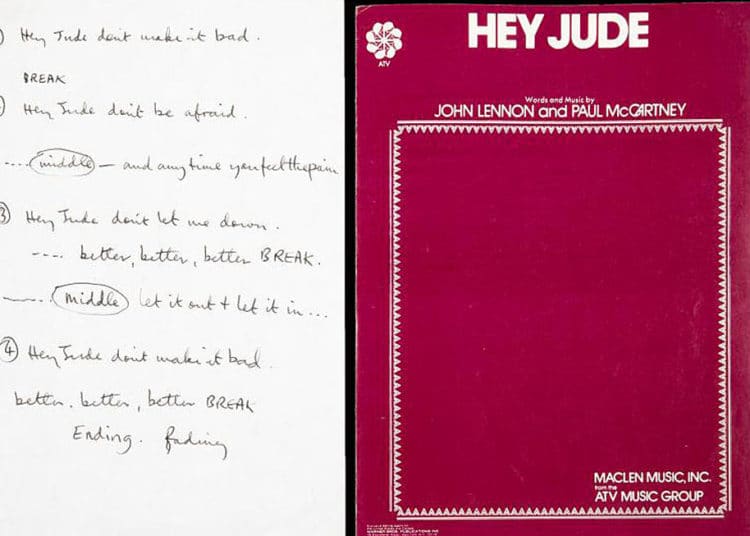 Hey Jude don't make it bad.
BREAK
Hey Jude don't be afraid.
.... middle — and anytime you feel the pain
3 Hey Jude don't let me down.
---- better, better, better BREAK.
middle let it out + let it in...
4 Hey Jude don't make it bad.
better. better, better BREAK
Ending. fading
ATV
HEY JUDE
Words and Music by
JOHN LENNON and PAUL McCARTNEY
MACLEN MUSIC, INC.
from the
ATV MUSIC GROUP
WARNER BROS. PUBLICATIONS INC.